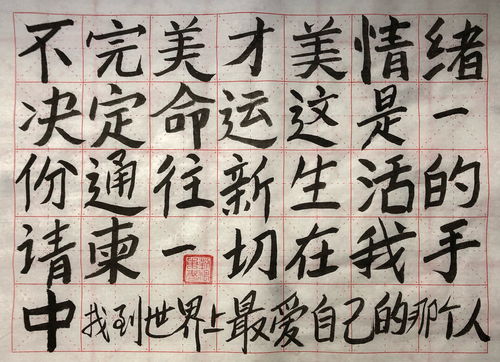 不完美才美情绪
决定命运这是一
份通往新生活的
请柬一切在我手
中找到世界上最爱自己的那个人